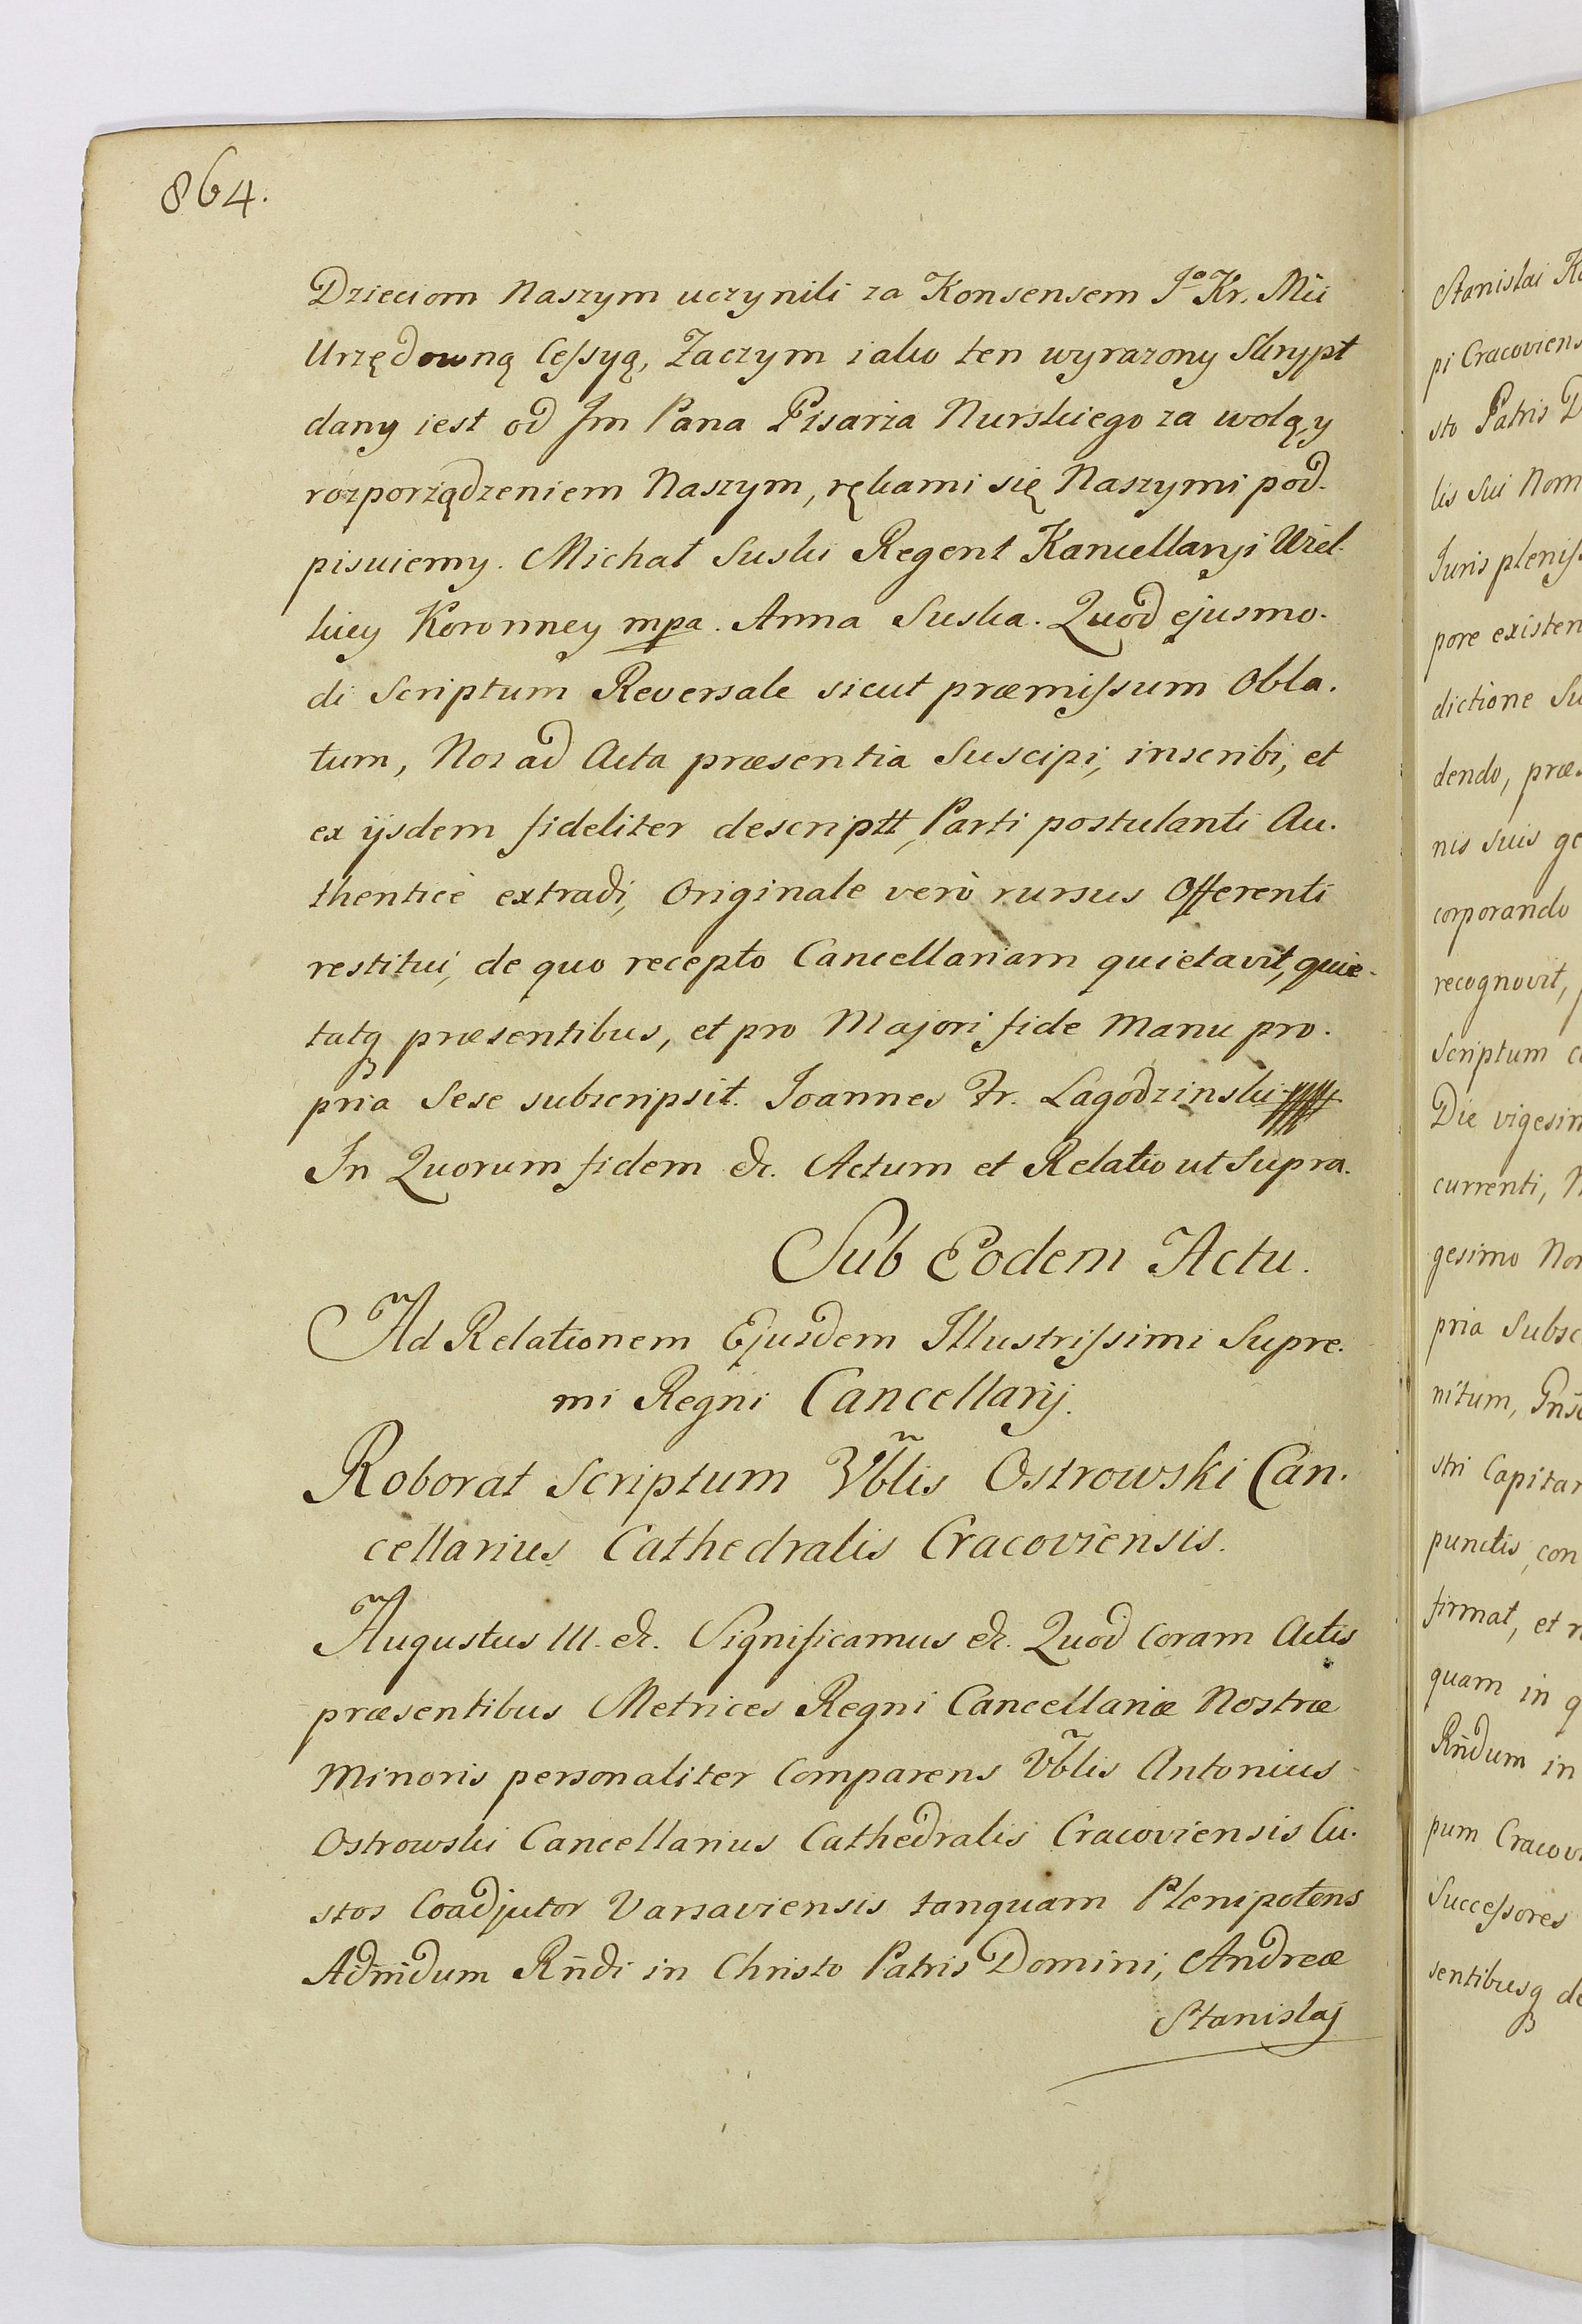 864.
Dzieciom Naszym uczynili za Konsensem Jo Kr. Mći
Urzędowną Cessyą, Zaczym iako ten wyrazony Skrypt
dany iest od Jm Pana Pisarza Nurskiego za wolą, y
rozporządzeniem Naszym, rękami się Naszymi pod-
pisuiemy. Michał Suski Regent Kancellaryi Wiel-
kiey Koronney mpa. Anna Suska. Quod ejusmo-
di Scriptum Reversale sicut præmissum Obla-
tum, Nos ad Acta præsentia Suscipi, inscribi, et
ex ijsdem fideliter descriptt, Parti postulanti Au-
thenticè extradi, Originale verò rursus Offerenti
restitui, de quo recepto Cancellariam quietavit, quie-
tatq præsentibus, et pro Majori fide Manu pro-
pria Sese subscripsit. Joannes Fr. Lagodzinski
In Quorum fidem &c. Actum et Relatio ut Supra.
Sub Eodem Actu.
Ad Relationem Ejusdem Illustrissimi Supre-
mi Regni Cancellarij.
Roborat Scriptum Vblis Ostrowski Can-
cellarius Cathedralis Cracoviensis.
Augustus III. &c. Significamus &c. Quod Coram Actis
præsentibus Metrices Regni Cancellariæ Nostræ
Minoris personaliter Comparens Vblis Antonius
Ostrowski Cancellarius Cathedralis Cracoviensis Cu-
stos Coadjutor Varsaviensis tanquam Plenipotens
Admdum Rndi in Christo Patris Domini, Andreæ
Stanislaj
Stanislai
pi Cracoviens
sto Patris D
lis Sui Nom
Juris pleniss
pore existen
dictione Su
dendo, præs
nis Suis ge
corporando
recognovit,
Scriptum
Die vigesim
currenti,
gesimo Non
pria Subsc
nitum,
stri Capitan
punctis, con
firmat, et r
quam in q
Rndum in
pum Cracov
Successores
sentibusq de